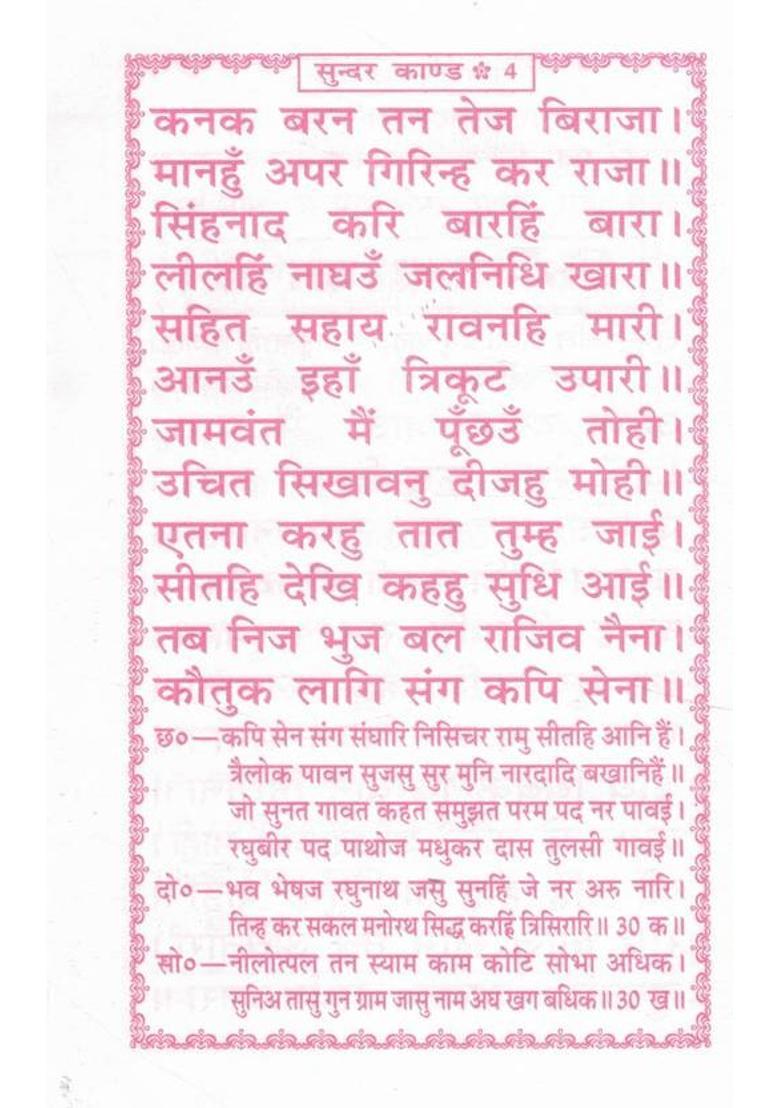 सुन्दर काण्ड ❀ 4
कनक बरन तन तेज बिराजा।
मानहुँ अपर गिरिन्ह कर राजा॥
सिंहनाद करि बारहिं बारा।
लीलहिं नाघउँ जलनिधि खारा॥
सहित सहाय रावनहि मारी।
आनउँ इहाँ त्रिकूट उपारी॥
जामवंत मैं पूँछउँ तोही।
उचित सिखावनु दीजहु मोही॥
एतना करहु तात तुम्ह जाई।
सीतहि देखि कहहु सुधि आई॥
तब निज भुज बल राजिव नैना।
कौतुक लागि संग कपि सेना॥
छ०—कपि सेन संग संघारि निसिचर रामु सीतहि आनि हैं।
त्रैलोक पावन सुजसु सुर मुनि नारदादि बखानिहैं॥
जो सुनत गावत कहत समुझत परम पद नर पावई।
रघुबीर पद पाथोज मधुकर दास तुलसी गावई॥
दो०—भव भेषज रघुनाथ जसु सुनहिं जे नर अरु नारि।
तिन्ह कर सकल मनोरथ सिद्ध करहिं त्रिसिरारि॥ 30 क॥
सो०—नीलोत्पल तन स्याम काम कोटि सोभा अधिक।
सुनिअ तासु गुन ग्राम जासु नाम अघ खग बधिक॥ 30 ख॥